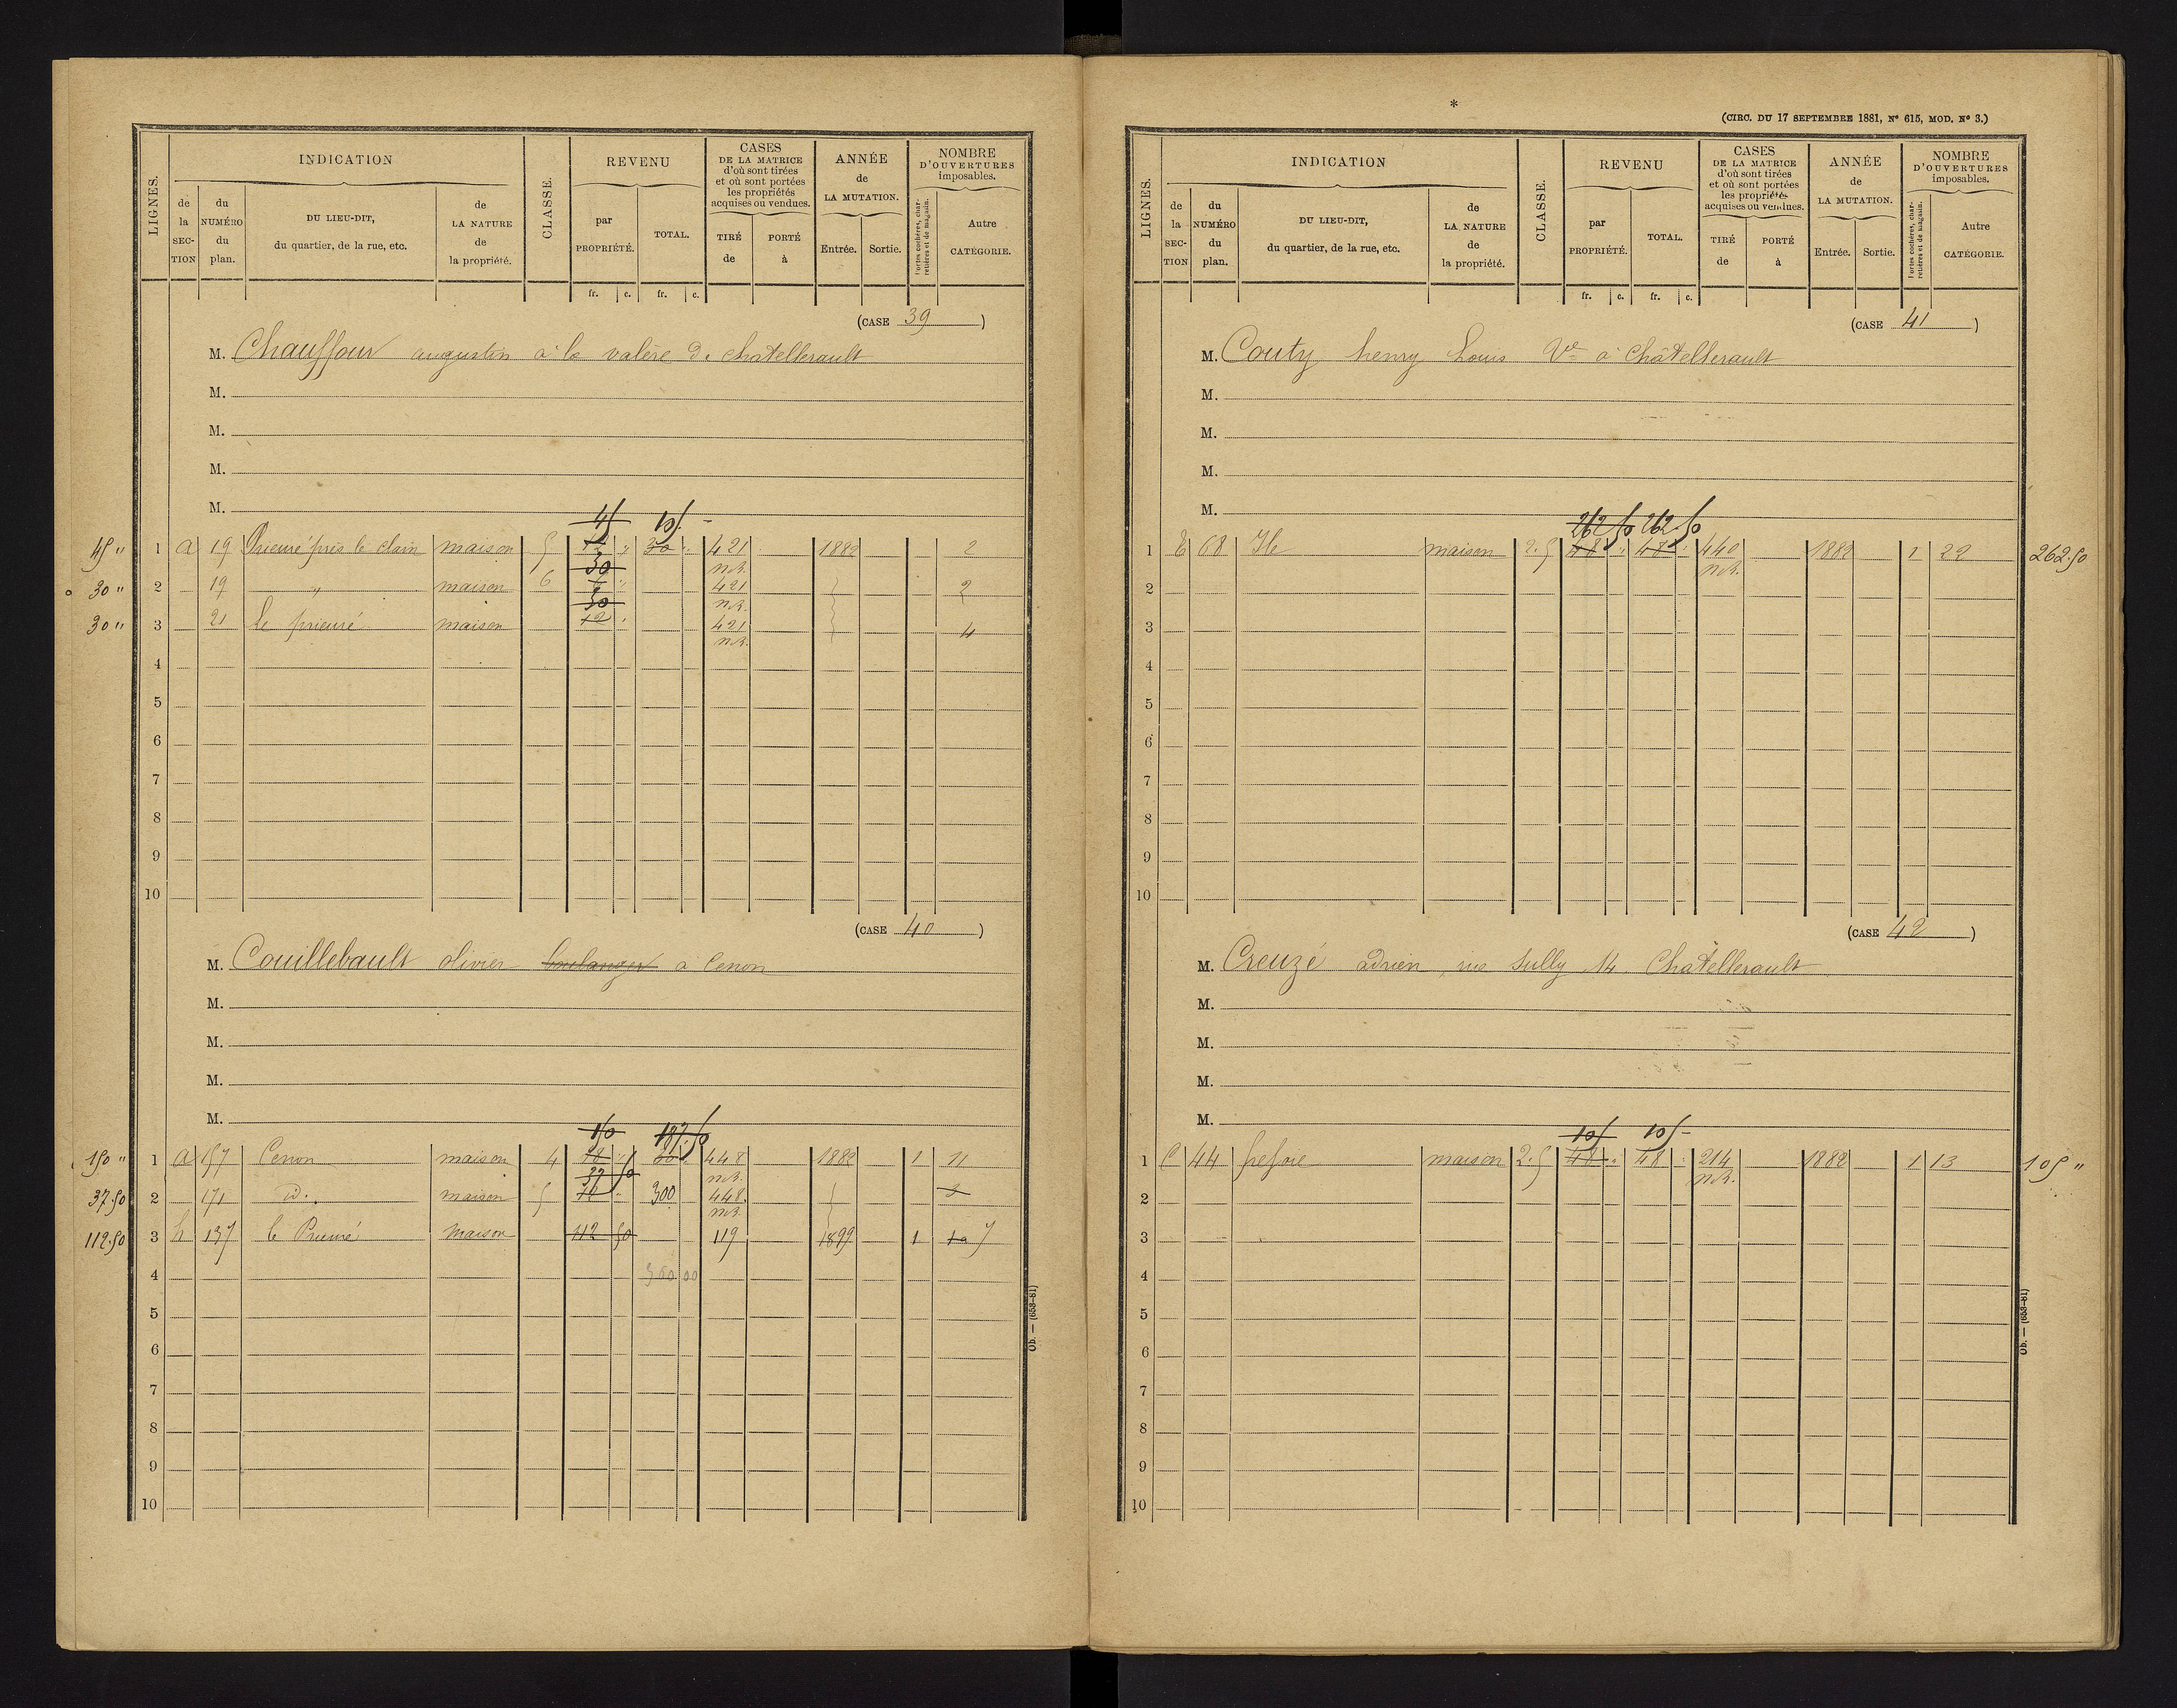 LIGNES.
INDICATION
de la SECTION
du NUMÉRO du plan.
DU LIEU-DIT, du quartier, de la rue, etc.
de LA NATURE de la propriété.
CLASSE.
REVENU
par PROPRIÉTÉ.
TOTAL.
fr. c. fr. c.
CASES DE LA MATRICE d'où sont tirées et où sont portées les propriétés acquises ou vendues.
TIRÉ de
PORTÉ à
ANNÉE de LA MUTATION.
Entrée. Sortie.
NOMBRE D'OUVERTURES imposables.
Portes cochères, charretières et de magasin.
Autre CATÉGORIE.
(CASE 39)
M. Chauffour augustin à la valère de chatellerault
M.
M.
M.
M.
45 10 -
45 " 1 a 19 Prieuré près le clain maison 5 " 30 " 421 1882 2
30 n.R.
30 " 2 19 " maison 6 " 421 2
30 n.R.
30 " 3 21 le prieuré maison 12 " 421 4
n.R.
4
5
6
7
8
9
10
(CASE 40)
M. Couillebault olivier boulanger a Cenon
M.
M.
M.
M.
150 187.50
150 " 1 a 157 Cenon maison 4 48 " 60 " 448 1882 1 11
37 50 n.R.
37.50 2 171 d. maison 5 " 300 448 3
n.R.
112.50 3 h 137 le Prieuré maison 112 50 119 1899 1 10 7
4 300 00
5
6
7
8
9
10
Ob. — (658-81)
*
(CIRC. DU 17 SEPTEMBRE 1881, N° 615, MOD. N° 3.)
LIGNES.
INDICATION
de la SECTION
du NUMÉRO du plan.
DU LIEU-DIT, du quartier, de la rue, etc.
de LA NATURE de la propriété.
CLASSE.
REVENU
par PROPRIÉTÉ.
TOTAL.
fr. c. fr. c.
CASES DE LA MATRICE d'où sont tirées et où sont portées les propriétés acquises ou vendues.
TIRÉ de
PORTÉ à
ANNÉE de LA MUTATION.
Entrée. Sortie.
NOMBRE D'OUVERTURES imposables.
Portes cochères, charretières et de magasin.
Autre CATÉGORIE.
(CASE 41)
M. Couty henry Louis Ve à Châtellerault
M.
M.
M.
M.
262 50 262.50
1 E 68 maison 2.5 48 " 48 " 440 1882 1 22 262.50
n.R.
2
3
4
5
6
7
8
9
10
(CASE 42)
M. Creuzé adrien rue Sully 14 Chatellerault
M.
M.
M.
M.
105 105 -
1 C 44 maison 2.5 48 " 48 " 214 1882 1 13 105 "
n.R.
2
3
4
5
6
7
8
9
10
Ob. — (658-81)